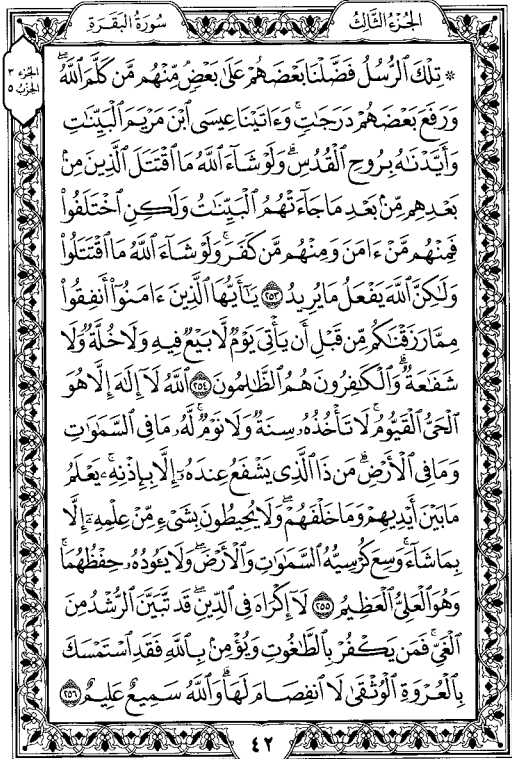 سُورَةُ البَقَرَةِ
الجُزءُ الثَّالِثُ
الجزء ٣
الحزب ٥
۞ تِلْكَ ٱلرُّسُلُ فَضَّلْنَا بَعْضَهُمْ عَلَىٰ بَعْضٍ مِّنْهُم مَّن كَلَّمَ ٱللَّهُ ۖ
وَرَفَعَ بَعْضَهُمْ دَرَجَٰتٍ ۚ وَءَاتَيْنَا عِيسَى ٱبْنَ مَرْيَمَ ٱلْبَيِّنَٰتِ
وَأَيَّدْنَٰهُ بِرُوحِ ٱلْقُدُسِ ۗ وَلَوْ شَآءَ ٱللَّهُ مَا ٱقْتَتَلَ ٱلَّذِينَ مِنۢ
بَعْدِهِم مِّنۢ بَعْدِ مَا جَآءَتْهُمُ ٱلْبَيِّنَٰتُ وَلَٰكِنِ ٱخْتَلَفُوا۟
فَمِنْهُم مَّنْ ءَامَنَ وَمِنْهُم مَّن كَفَرَ ۚ وَلَوْ شَآءَ ٱللَّهُ مَا ٱقْتَتَلُوا۟
وَلَٰكِنَّ ٱللَّهَ يَفْعَلُ مَا يُرِيدُ ٢٥٣ يَٰٓأَيُّهَا ٱلَّذِينَ ءَامَنُوٓا۟ أَنفِقُوا۟
مِمَّا رَزَقْنَٰكُم مِّن قَبْلِ أَن يَأْتِىَ يَوْمٌ لَّا بَيْعٌ فِيهِ وَلَا خُلَّةٌ وَلَا
شَفَٰعَةٌ ۗ وَٱلْكَٰفِرُونَ هُمُ ٱلظَّٰلِمُونَ ٢٥٤ ٱللَّهُ لَآ إِلَٰهَ إِلَّا هُوَ
ٱلْحَىُّ ٱلْقَيُّومُ ۚ لَا تَأْخُذُهُۥ سِنَةٌ وَلَا نَوْمٌ ۚ لَّهُۥ مَا فِى ٱلسَّمَٰوَٰتِ
وَمَا فِى ٱلْأَرْضِ ۗ مَن ذَا ٱلَّذِى يَشْفَعُ عِندَهُۥٓ إِلَّا بِإِذْنِهِۦ ۚ يَعْلَمُ
مَا بَيْنَ أَيْدِيهِمْ وَمَا خَلْفَهُمْ ۖ وَلَا يُحِيطُونَ بِشَىْءٍ مِّنْ عِلْمِهِۦٓ إِلَّا
بِمَا شَآءَ ۚ وَسِعَ كُرْسِيُّهُ ٱلسَّمَٰوَٰتِ وَٱلْأَرْضَ ۖ وَلَا يَـُٔودُهُۥ حِفْظُهُمَا ۚ
وَهُوَ ٱلْعَلِىُّ ٱلْعَظِيمُ ٢٥٥ لَآ إِكْرَاهَ فِى ٱلدِّينِ ۖ قَد تَّبَيَّنَ ٱلرُّشْدُ مِنَ
ٱلْغَىِّ ۚ فَمَن يَكْفُرْ بِٱلطَّٰغُوتِ وَيُؤْمِنۢ بِٱللَّهِ فَقَدِ ٱسْتَمْسَكَ
بِٱلْعُرْوَةِ ٱلْوُثْقَىٰ لَا ٱنفِصَامَ لَهَا ۗ وَٱللَّهُ سَمِيعٌ عَلِيمٌ ٢٥٦
٤٢